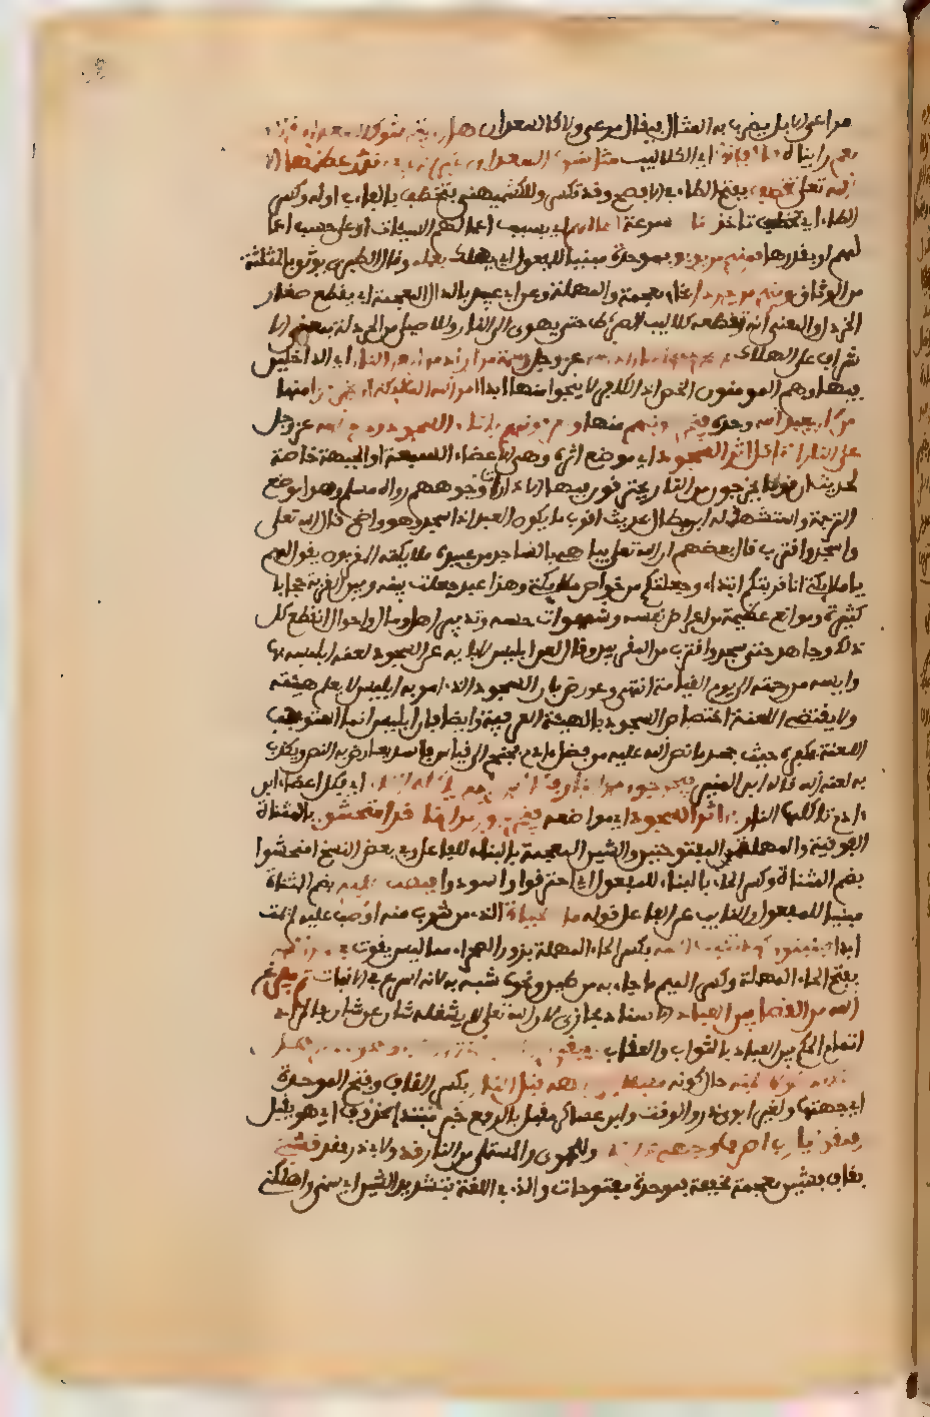 مراعي الابل يضرب به المثال فيقال مرعى ولا كالسعدان هل رايتم شوك السعدان قالوا
نعم رايناه قال فانها اي الكلاليب مثل شوك السعدان غير انه لا يعلم قدر عظمها الا
الله تعلى تخطف بفتح الطاء في الافصح وقد تكسر وللكشميهني فتختطف بالفاء في اوله وكسر
الطاء اي تاخذ الناس بسرعة باعمالهم اي بسبب اعمالهم السيئات او على حسب اعما
لهم او بقدرها فمنهم من يوبق بموحدة مبنيا للمفعول اي يهلك بعمله وقال الطبري يوثق بالمثلثة
من الوثاق ومنهم من يخردل بخاء معجمة ودال مهملة وعن ابي عبيد بالذال المعجمة اي يقطع صغار
الخردل والمعنى انه تقطعه كلاليب الصراط حتى يهوي الى النار وللاصيلي من الجردلة بمعنى الا
شراف على الهلاك ثم ينجو حتى اذا اراد الله عز وجل رحمة من اراد من اهل النار اي الداخلين
فيها وهم المومنون الخلص اذ الكافر لا ينجو منها ابدا امر الله الملائكة ان يخرجوا منها
من كان يعبد الله وحده فيخرجونهم منها ويعرفونهم باثار السجود وحرم الله عز وجل
على النار ان تاكل اثر السجود اي موضع اثره وهي الاعضاء السبعة او الجبهة خاصة
لحديث ان قوما يخرجون من النار يحترقون فيها الا دارات وجوههم رواه مسلم وهذا موضع
الترجمة واستشهد له ابن بطال بحديث اقرب ما يكون العبد اذا سجد وهو واضح قال الله تعلى
واسجد واقترب قال بعضهم ان الله تعلى يباهي بالساجدين من عبيده ملائكته المقربين يقول لهم
يا ملائكتي انا قربتكم ابتداء وجعلتكم من خواص ملائكتي وهذا عبدي جعلت بينه وبين القربة حجابا
كثيرة وموانع عظيمة من اغراض نفسه وشهوات حسه وتدبير اهل ومال واحوال فقطع كل
ذلك وجاهد حتى سجد واقترب فكان من المقربين وقال لعن ابليس لابايه عن السجود لعنة ابلسه بها
وايسه من رحمته الى يوم القيامة انتهى وعورض بان السجود الذي امر به ابليس لا يعلم هيئته
ولا يقتضي اللعنة اختصاص السجود بالهيئة العرفية وايضا فان ابليس انما استوجب
اللعنة بكفره حيث جحد ما نص الله عليه من فضل ادم فجنح الى قياس فاسد يعارض به النص ويكذب
به لعنه الله قاله ابن المنير فيخرجون من النار فكل ابن ادم تاكله النار اي فكل اعضاء ابن
ادم تاكلها النار الا اثر السجود اي مواضعه فيخرجون من النار قد امتحشوا بالمثناة
الفوقية والمهملة المفتوحتين والشين المعجمة بالبناء للفاعل وفي بعض النسخ امتحشوا
بضم المثناة وكسر الحاء بالبناء للمفعول اي احترقوا واسودوا فيصب عليهم بضم المثناة
مبنيا للمفعول والنايب عن الفاعل قوله ماء الحياة الذي من شرب منه او صب عليه لم يمت
ابدا فينبتون كما تنبت الحبة بكسر الحاء المهملة بزور الصحراء مما ليس بقوت في حميل السيل
بفتح الحاء المهملة وكسر الميم ما جاء به من طين ونحوه شبه به لانه اسرع في الانبات ثم يفرغ
الله من القضاء بين العباد الاسناد مجازي لان الله تعلى لا يشغله شان عن شان فالمراد
اتمام الحكم بين العباد بالثواب والعقاب ويبقى رجل بين الجنة والنار وهو اخر اهل النار
دخولا الجنة حال كونه مقبلا بوجهه قبل النار بكسر القاف وفتح الموحدة
اي جهتها ولغير ابوي ذر والوقت وابن عساكر مقبل بالرفع خبر مبتدا محذوف اي هو مقبل
فيقول يا رب اصرف وجهي عن النار وللحموي والمستملي من النار فقد ولابي ذر وقد قشبني
بقاف فشين معجمة مخففة فموحدة مفتوحات والذي في اللغة بتشديد الشين اي سمني واهلكني